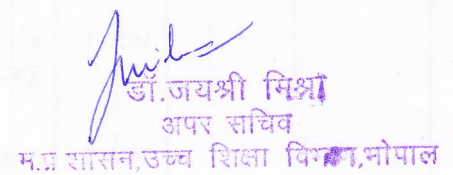 डॉ.जयश्री मिश्रा
अपर सचिव
म.प्र शासन,उच्च शिक्षा विभाग,भोपाल